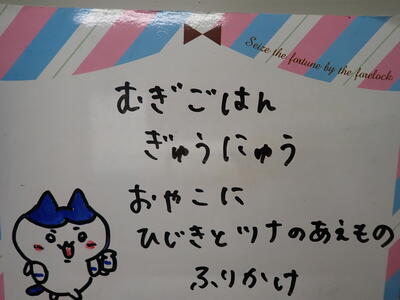 Seize the fortune by the forelock.
むぎごはん
ぎゅうにゅう
おやこに
ひじきとツナのあえもの
ふりかけ